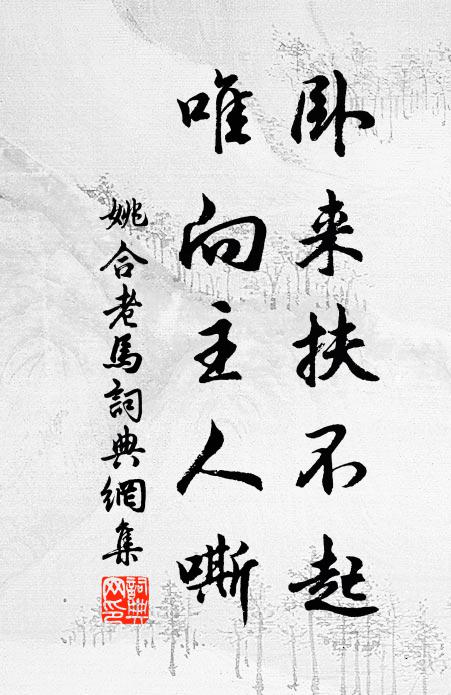 卧来扶不起
唯向主人嘶
姚合老馬詞典網集
詞典网印